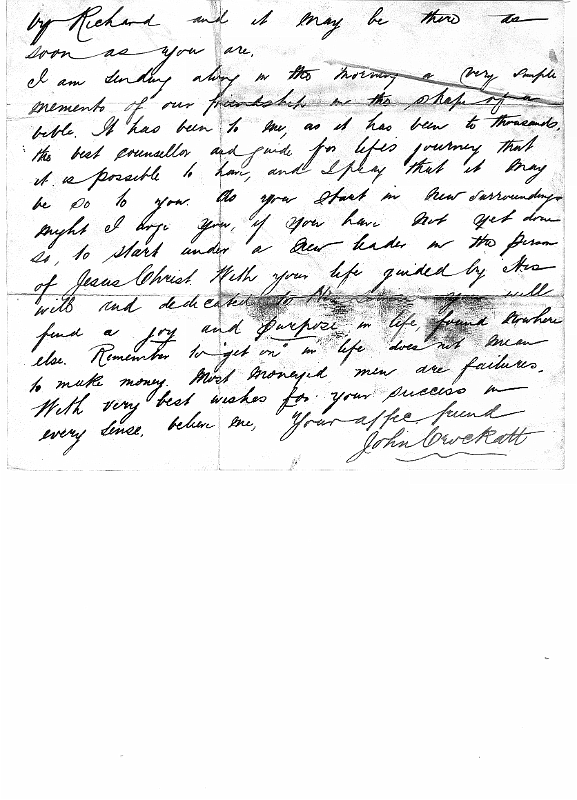 by Richard and it may be there as
soon as you are.
I am sending along in the morning a very simple
memento of our friendship in the shape of a
bible. It has been to me, as it has been to thousands,
the best counsellor and guide for life's journey that
it is possible to have, and I pray that it may
be so to you. As you start in new surroundings
might I urge you, if you have not yet done
so, to start under a new leader in the person
of Jesus Christ. With your life guided by His
will and dedicated to you will
find a joy and purpose in life, found nowhere
else. Remember to "get on" in life does not mean
to make money. Most moneyed men are failures.
With very best wishes for your success in
every sense, believe me, Your affec. friend
John Crockatt